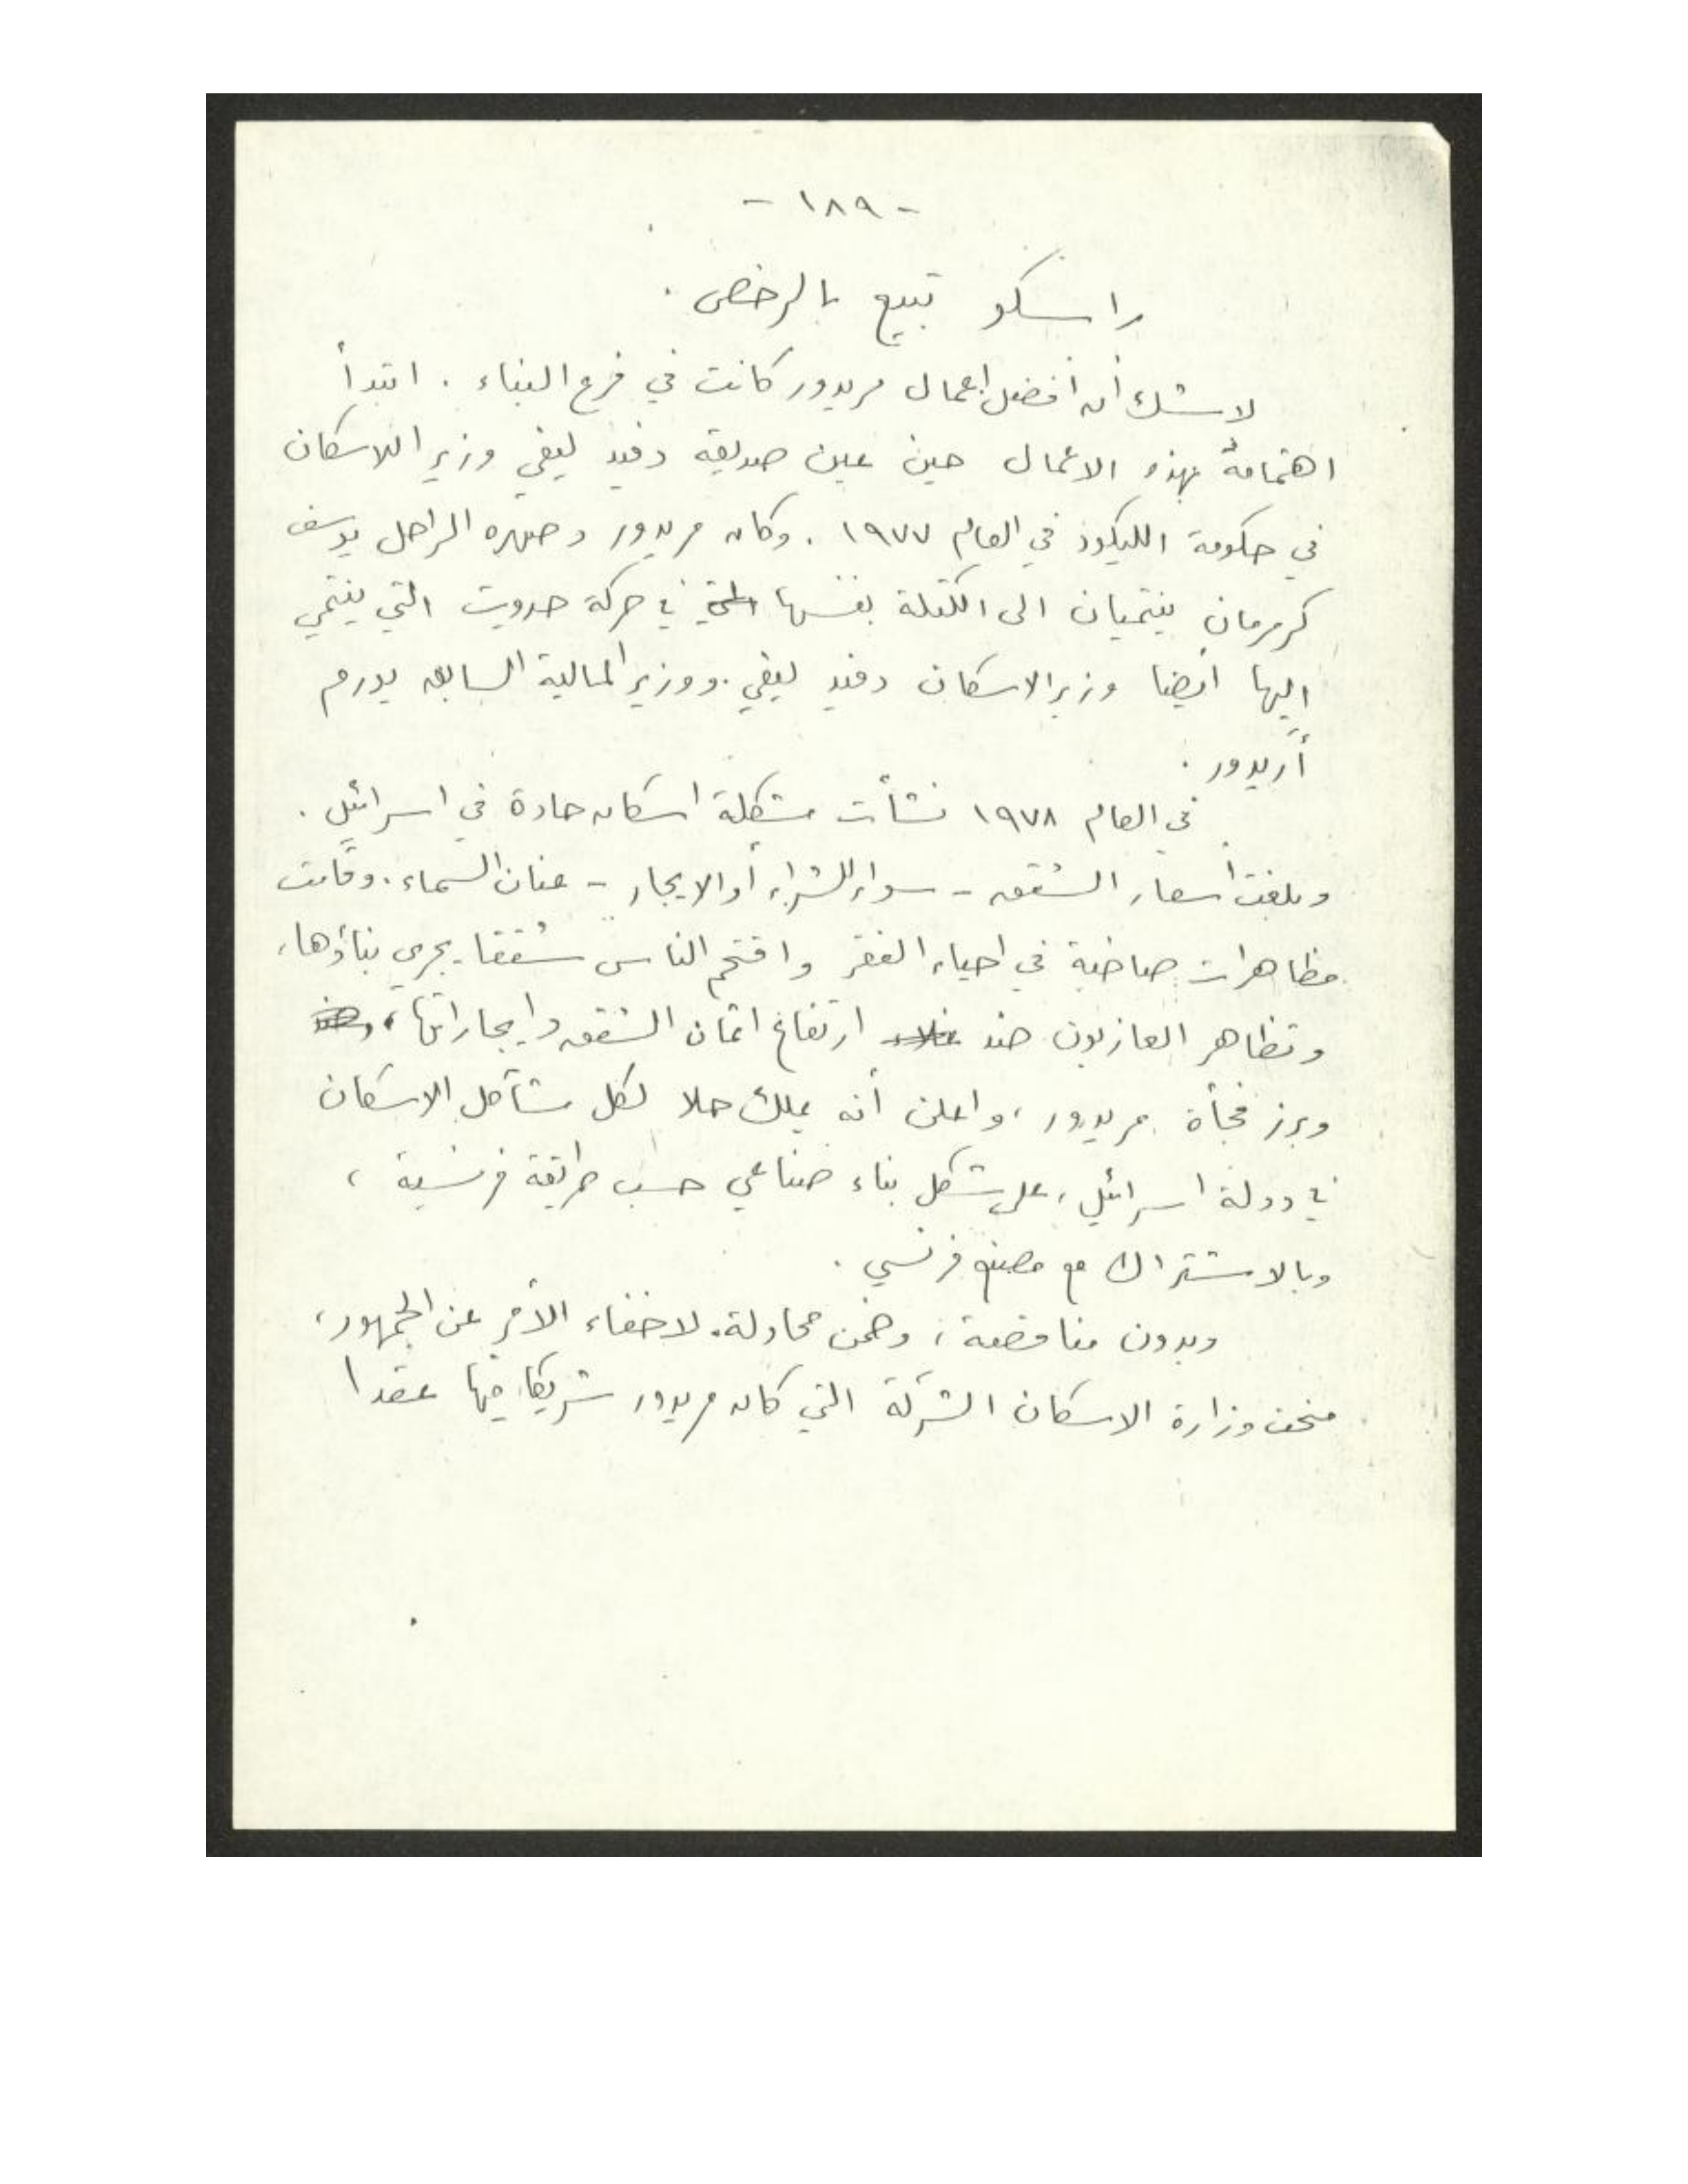 - ١٨٩ -
راسكو تبيع بالرخص .
لا شك أن أفضل اعمال مريدور كانت في فرع البناء . ابتدأ
اهتمامه بهذه الاعمال حين عين صديقه دفيد ليفي وزير اللاسكان
في حكومة الليكود في العام ١٩٧٧ . وكان مريدور وصهره الراحل يوسف
كرمرمان ينتميان الى الكتلة نفسها التي في حركة حروت التي ينتمي
اليها أيضا وزير الاسكان دفيد ليفي . ووزير المالية السابق يورم
أريدور .
في العام ١٩٧٨ نشأت مشكلة اسكان حادة في اسرائيل .
وبلغت أسعار الشقق - سواء للشراء أو الايجار - عنان السماء . وقامت
مظاهرات صاخبة في احياء الفقر واقتحم الناس شققا يجري بناؤها ،
وتظاهر العازبون ضد ارتفاع اثمان الشقق وايجاراتها ،
وبرز فجأة مريدور ، واعلن أنه يملك حلا لكل مشاكل الاسكان
في دولة اسرائيل ، على شكل بناء صناعي حسب طريقة فرنسية ،
وبالاشتراك مع مصنع فرنسي .
وبدون مناقصة ، وضمن محاولة لاخفاء الأمر عن الجمهور ،
منحت وزارة الاسكان الشركة التي كان مريدور شريكا فيها عقدا